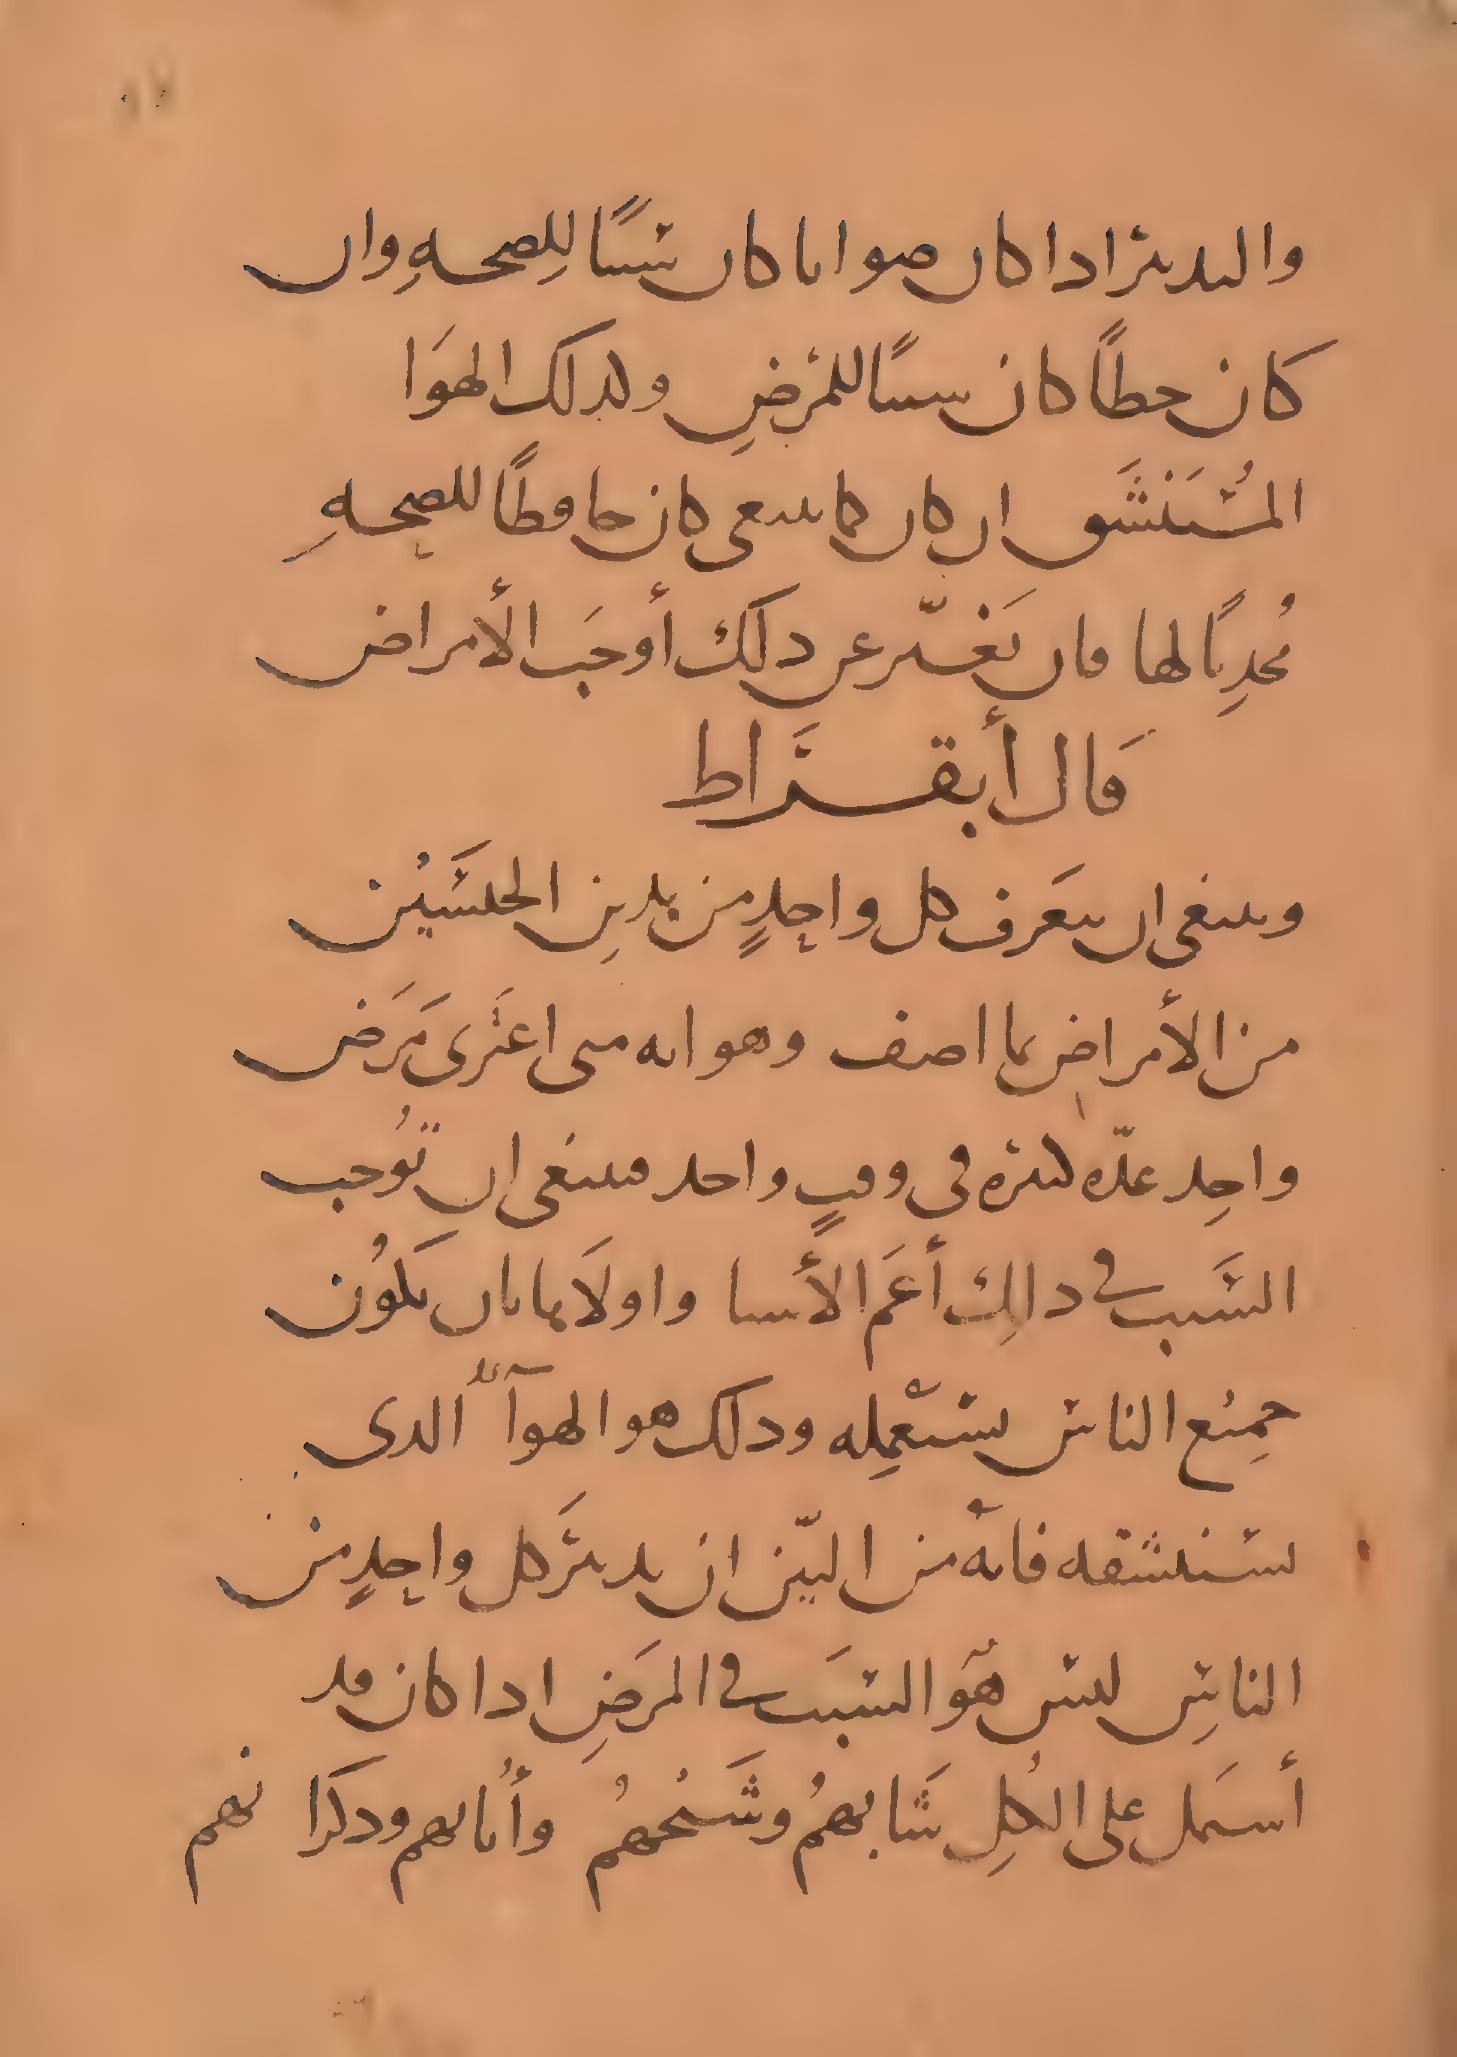 والتدبير اذا كان صوابا كان سببًا لِلصحهِ وان
كان خطاً كان سببًا للمرضِ وكذلك الهوَا
المُستَنشَق ان كان كما ينبغى كان حافظًا للصحِهِ
مُحدِثًا لها فان تَغيّر عن ذلك أوجَب الأمراض
قَال أبقــرَاط
وينبغى ان يتعَرف كل واحِدٍ من هذينِ الجنسَيْن
من الأمراضِ بما اصف وهو انه متى اعتَرىَ مَرَض
واحِد عدّه كثيره فى وقتٍ واحد فينبغى ان تُوجب
السَّبب في ذالِك أَعَم الأسبا واولاَها بان يَكُون
جمِيْع الناس يستعْمِله وذلك هو الهوآ الذى
يستنشقه فانهْ من البيّن ان تدبيرَ كل واحِدٍ من
الناسِ ليس هوَ السبَب في المرَضِ اذا كان قد
أشتَمل على الكُلِ شَبابهمُ وشَيْخهُمُ وأُناثهم وذكرَا نهم